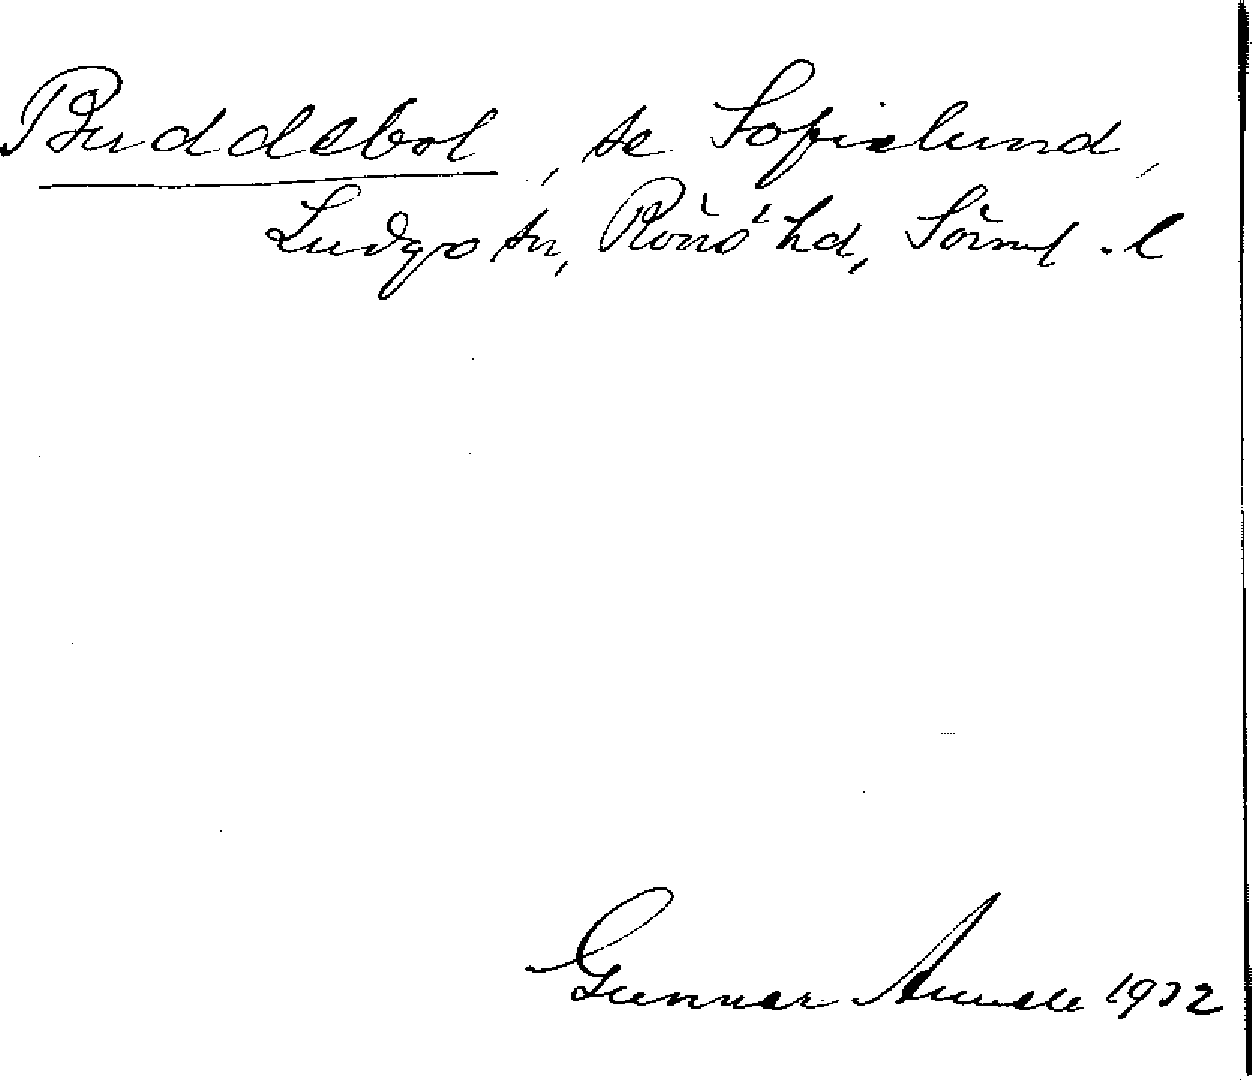 Buddebol, se Sofielund,
Ludgo sn, Rönö hd, Sörml. l
Gunnar 1932